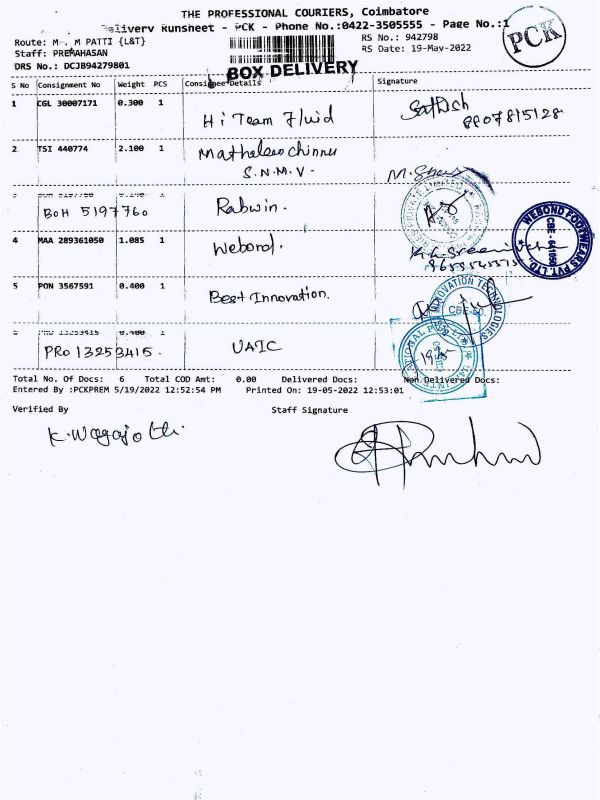 THE PROFESSIONAL COURIERS, Coimbatore
Delivery Runsheet - PCK - Phone No.:0422-3505555 - Page No.:1
PCK
Route: M PATTI {L&T}
RS No.: 942798
Staff: PREMAHASAN
RS Date: 19-May-2022
DRS No.: DCJB94279801
BOX DELIVERY
S No Consignment No Weight PCS Consignee Details Signature
1 CGL 30007171 0.300 1 Hi Team Fluid Sathish
8907815128
2 TSI 440774 2.100 1
S.N.M.V.
BOH 5197760 Rabwin.
4 MAA 289361050 1.085 1 Webond.
WEBOND FOOTWEARS PVT. LTD. CBE - 641050
5 PON 3567591 0.400 1 Best Innovation.
INNOVATION TECHNOLOGIES
CBE-50.
PRO 13253415 0.400 1
PRO 13253415. UAIC
19/5
Total No. Of Docs: 6 Total COD Amt: 0.00 Delivered Docs: Non Delivered Docs:
Entered By :PCKPREM 5/19/2022 12:52:54 PM Printed On: 19-05-2022 12:53:01
Verified By Staff Signature